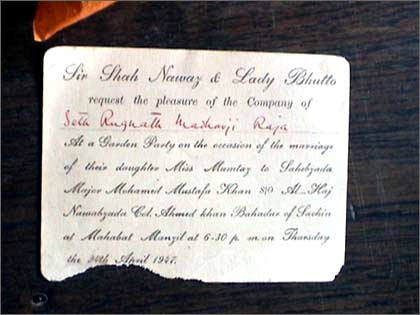 Sir Shah Nawaz & Lady Bhutto
request the pleasure of the Company of
Seth Rugnath Madhavji Raja
At a Garden Party on the occasion of the marriage
of their daughter Miss Mumtaz to Sahebzada
Major Mohamed Mustafa Khan S/O Al-Haj
Nawabzada Col. Ahmed khan Bahadur of Sachin
at Mahabat Manzil at 6-30 p. m. on Thursday
the 24th April 1947.